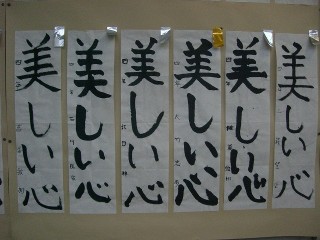 美しい心
美しい心
美しい心
美しい心
美しい心
美しい心